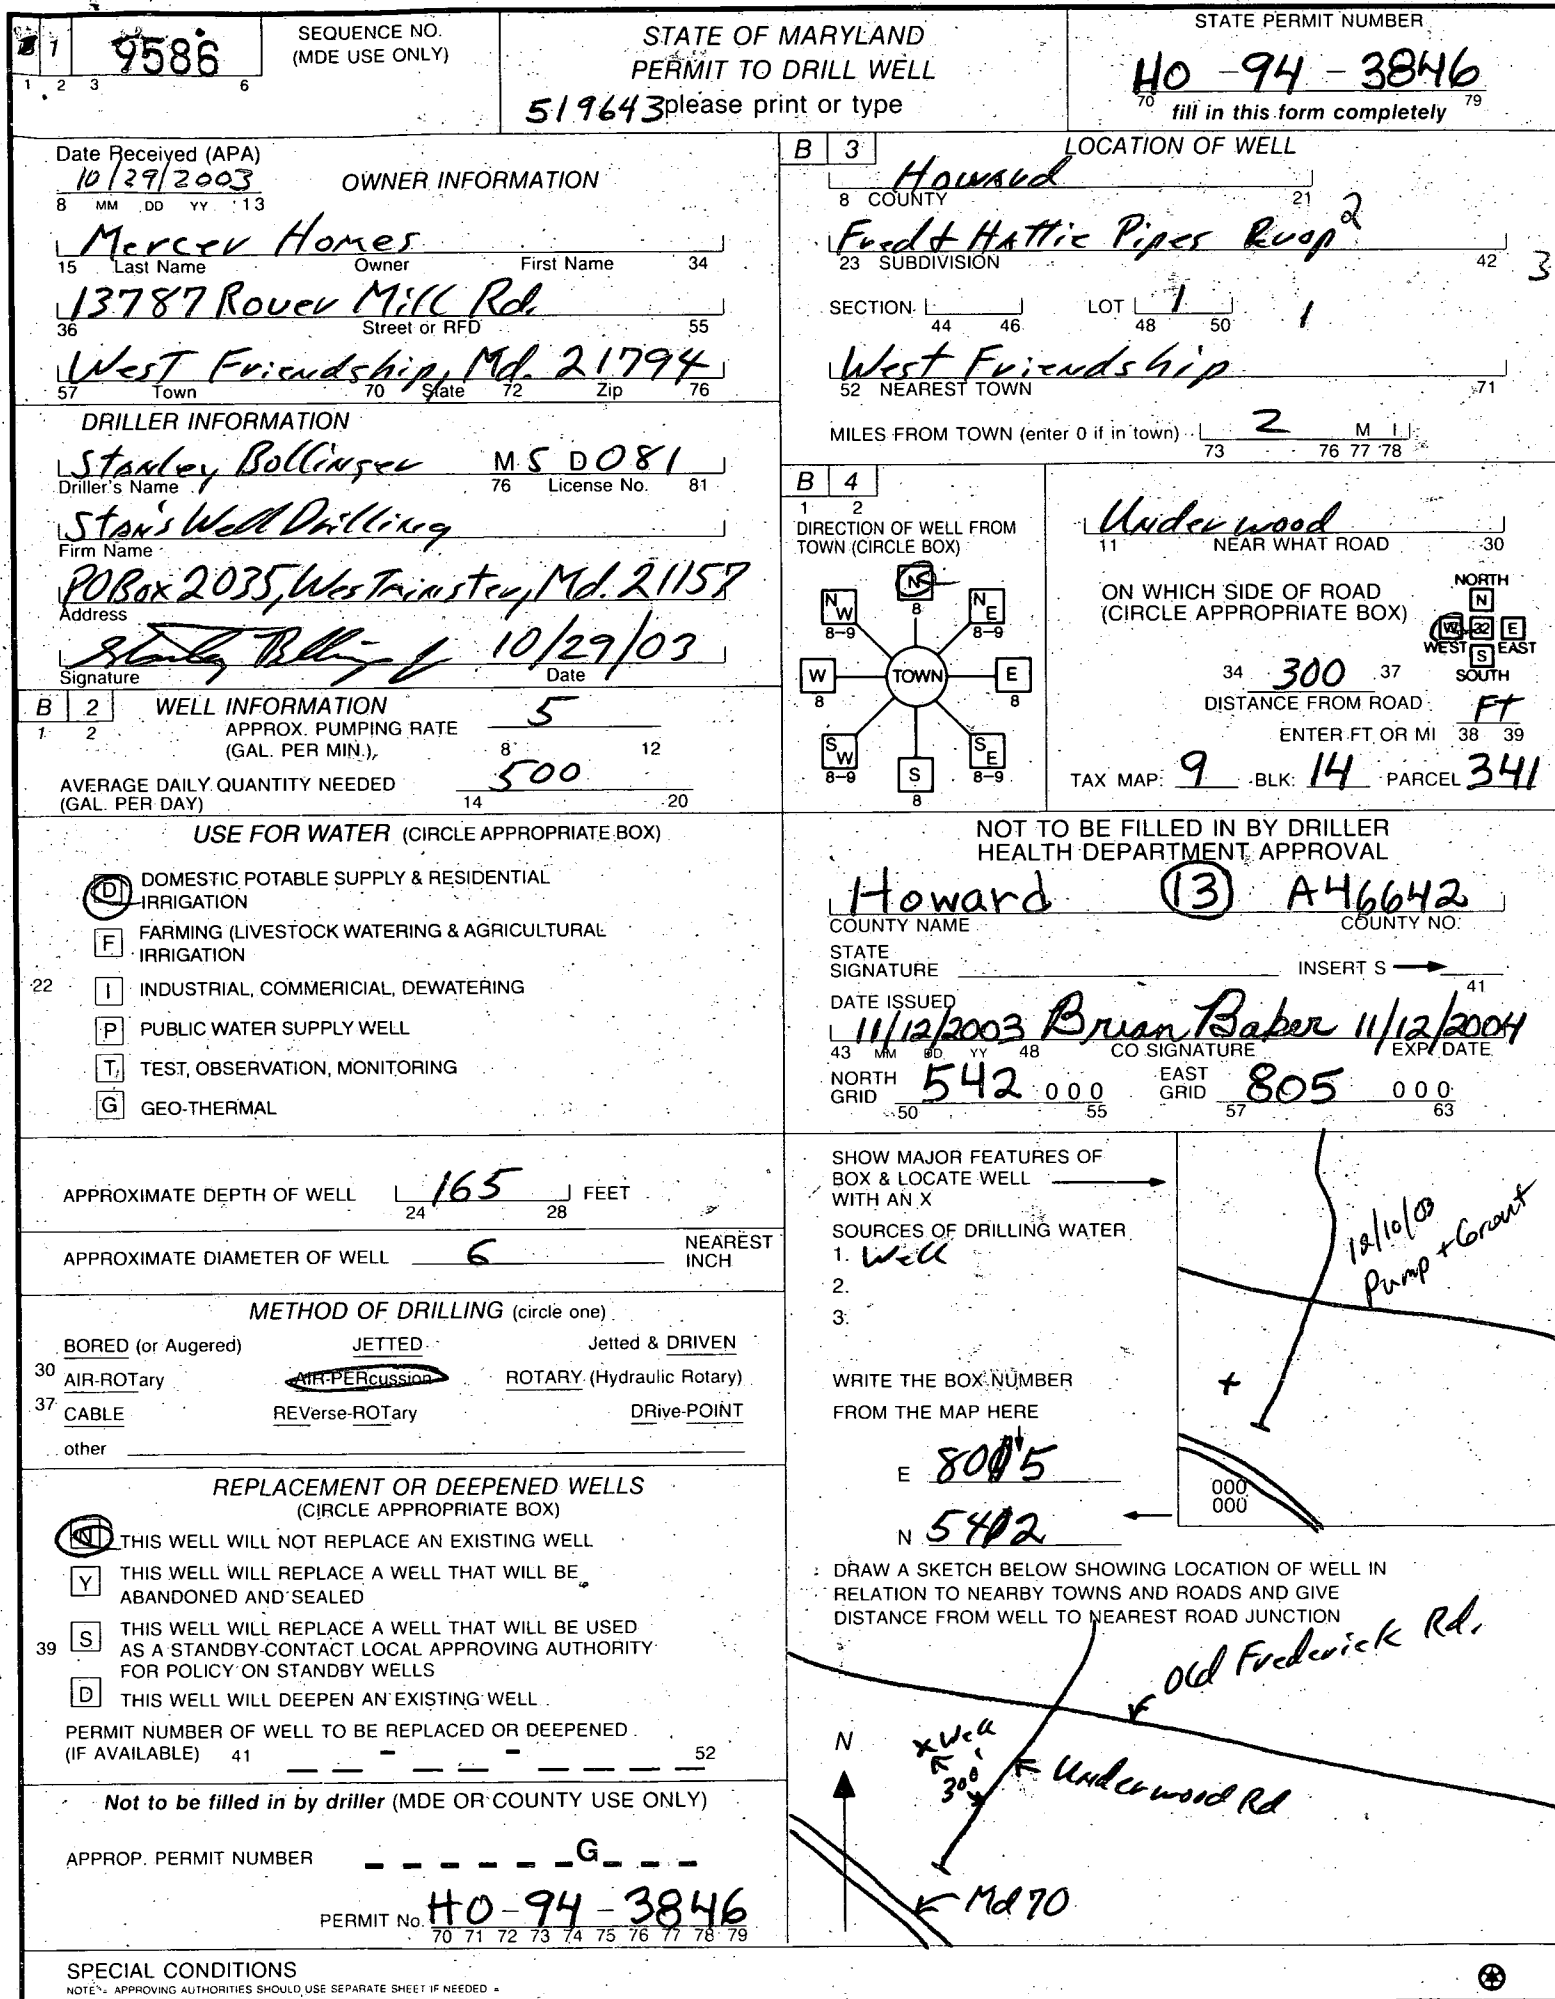 B 1 9586
1 2 3 6
SEQUENCE NO.
(MDE USE ONLY)
STATE OF MARYLAND
PERMIT TO DRILL WELL
519643 please print or type
STATE PERMIT NUMBER
HO - 94 - 3846
70 79
fill in this form completely
Date Received (APA)
10/29/2003
8 MM DD YY 13
OWNER INFORMATION
Mercer Homes
15 Last Name Owner First Name 34
13787 Rover Mill Rd.
36 Street or RFD 55
West Friendship, Md. 21794
57 Town 70 State 72 Zip 76
DRILLER INFORMATION
Stanley Bollinger M S D 081
Driller's Name 76 License No. 81
Stan's Well Drilling
Firm Name
PO Box 2035, Westminster, Md. 21157
Address
Stanley Bollinger 10/29/03
Signature Date
B 2 WELL INFORMATION
1 2 APPROX. PUMPING RATE 5
(GAL. PER MIN.) 8 12
AVERAGE DAILY QUANTITY NEEDED 500
(GAL. PER DAY) 14 20
USE FOR WATER (CIRCLE APPROPRIATE BOX)
D DOMESTIC POTABLE SUPPLY & RESIDENTIAL
IRRIGATION
F FARMING (LIVESTOCK WATERING & AGRICULTURAL
IRRIGATION
22 I INDUSTRIAL, COMMERICIAL, DEWATERING
P PUBLIC WATER SUPPLY WELL
T TEST, OBSERVATION, MONITORING
G GEO-THERMAL
APPROXIMATE DEPTH OF WELL 165 FEET
24 28
APPROXIMATE DIAMETER OF WELL 6 NEAREST
INCH
METHOD OF DRILLING (circle one)
BORED (or Augered) JETTED Jetted & DRIVEN
30 AIR-ROTary AIR-PERcussion ROTARY (Hydraulic Rotary)
37 CABLE REVerse-ROTary DRive-POINT
other
REPLACEMENT OR DEEPENED WELLS
(CIRCLE APPROPRIATE BOX)
N THIS WELL WILL NOT REPLACE AN EXISTING WELL
Y THIS WELL WILL REPLACE A WELL THAT WILL BE
ABANDONED AND SEALED
39 S THIS WELL WILL REPLACE A WELL THAT WILL BE USED
AS A STANDBY-CONTACT LOCAL APPROVING AUTHORITY
FOR POLICY ON STANDBY WELLS
D THIS WELL WILL DEEPEN AN EXISTING WELL
PERMIT NUMBER OF WELL TO BE REPLACED OR DEEPENED
(IF AVAILABLE) 41 - - 52
Not to be filled in by driller (MDE OR COUNTY USE ONLY)
APPROP. PERMIT NUMBER G
PERMIT No. HO-94-3846
70 71 72 73 74 75 76 77 78 79
SPECIAL CONDITIONS
NOTE - APPROVING AUTHORITIES SHOULD USE SEPARATE SHEET IF NEEDED
B 3 LOCATION OF WELL
Howard
8 COUNTY 21
Fred & Hattie Pipes 2
23 SUBDIVISION 42 3
SECTION LOT 1 1
44 46 48 50
West Friendship
52 NEAREST TOWN 71
MILES FROM TOWN (enter 0 if in town) 2 M I
73 76 77 78
B 4
1 2
DIRECTION OF WELL FROM
TOWN (CIRCLE BOX)
N
8
NW NE
8-9 8-9
W TOWN E
8 8
SW SE
8-9 8-9
S
8
Underwood
11 NEAR WHAT ROAD 30
ON WHICH SIDE OF ROAD
(CIRCLE APPROPRIATE BOX)
NORTH
N
W 32 E
WEST EAST
S
SOUTH
34 300 37
DISTANCE FROM ROAD Ft
ENTER FT OR MI 38 39
TAX MAP: 9 BLK: 14 PARCEL 341
NOT TO BE FILLED IN BY DRILLER
HEALTH DEPARTMENT APPROVAL
Howard 13 A46642
COUNTY NAME COUNTY NO.
STATE
SIGNATURE INSERT S
41
DATE ISSUED
11/12/2003 Brian Baker 11/12/2004
43 MM DD YY 48 CO SIGNATURE EXP DATE
NORTH GRID 542 000 EAST GRID 805 000
50 55 57 63
SHOW MAJOR FEATURES OF
BOX & LOCATE WELL
WITH AN X
SOURCES OF DRILLING WATER
1. Well
2.
3.
12/10/03
Pump + Grout
+
WRITE THE BOX NUMBER
FROM THE MAP HERE
E 805
N 542
000
000
DRAW A SKETCH BELOW SHOWING LOCATION OF WELL IN
RELATION TO NEARBY TOWNS AND ROADS AND GIVE
DISTANCE FROM WELL TO NEAREST ROAD JUNCTION
Old Frederick Rd.
N
x Well
300'
Underwood Rd
Md 70